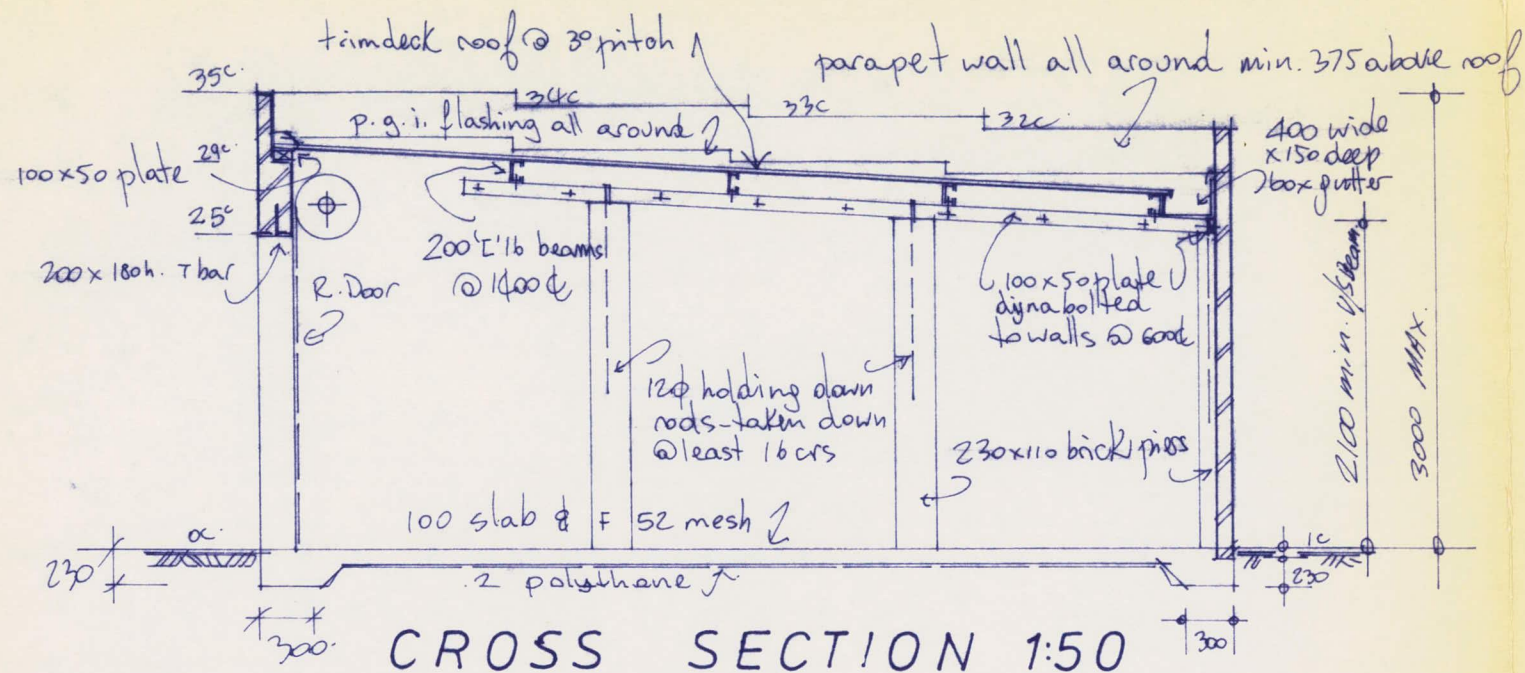 trimdeck roof @ 3° pitch
parapet wall all around min. 375 above roof
35c.
34c
33c
32c
p.g.i. flashing all around
400 wide
x150 deep
box gutter
29c.
100x50 plate
25c
200 x 180h. T bar
R. Door
200 'C' 16 beams
@ 1400 ℄
100x50 plate
dynabolted
to walls @ 600℄
12ϕ holding down
rods-taken down
@least 16 crs
230x110 brick piers
2100 min. u/s Beam
3000 MAX.
100 slab & F 52 mesh
1c
230
.2 polythane
230
300.
300
CROSS SECTION 1:50